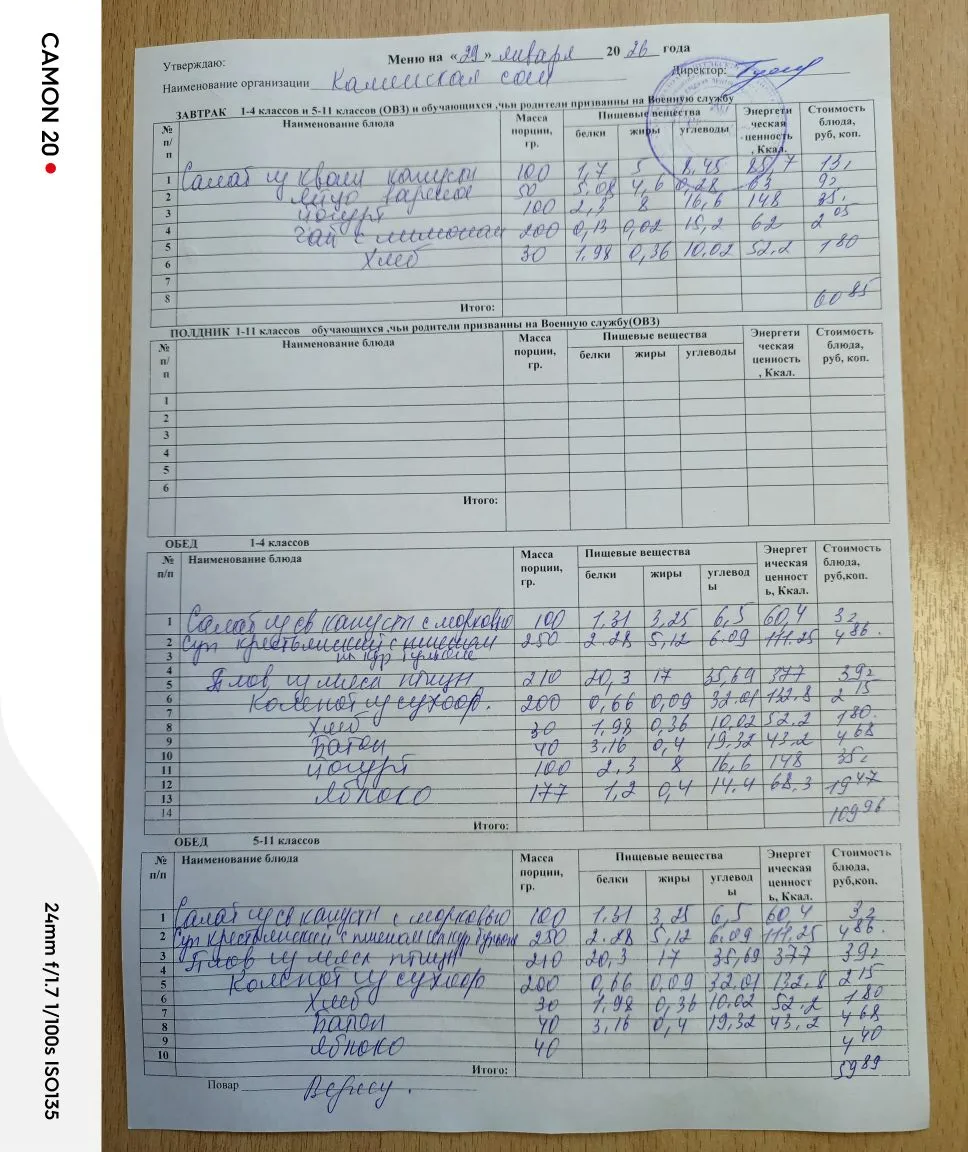 CAMON 20
24mm f/1.7 1/100s ISO135
Утверждаю: Меню на «29» января 20 26 года
Наименование организации Каменская сош Директор:
ЗАВТРАК 1-4 классов и 5-11 классов (ОВЗ) и обучающихся ,чьи родители призванны на Военную службу
№ п/п Наименование блюда Масса порции, гр. Пищевые вещества белки жиры углеводы Энергетическая ценность, Ккал. Стоимость блюда, руб, коп.
1 Салат из квош капусты 100 1,7 5 8,45 85,7 13,
2 яйцо вареное 50 5,08 4,6 0,28 63 9,
3 йогурт 100 2,3 8 16,6 148 35,
4 чай с лимоном 200 0,13 0,02 15,2 62 2 05
5 Хлеб 30 1,98 0,36 10,02 52,2 1 80
6
7
8
Итого: 60 85
ПОЛДНИК 1-11 классов обучающихся ,чьи родители призванны на Военную службу(ОВЗ)
№ п/п Наименование блюда Масса порции, гр. Пищевые вещества белки жиры углеводы Энергетическая ценность, Ккал. Стоимость блюда, руб, коп.
1
2
3
4
5
6
Итого:
ОБЕД 1-4 классов
№ п/п Наименование блюда Масса порции, гр. Пищевые вещества белки жиры углеводы Энергетическая ценность, Ккал. Стоимость блюда, руб,коп.
1 Салат из св капуст с морковью 100 1.31 3,25 6,5 60,4 3,
2 Суп крестьянский с пшеном 250 2.28 5,12 6.09 111.25 4 86
3 на кур бульоне
4
5 Плов из мяса птицы 210 20,3 17 35,69 377 39,
6 Компот из сухофр. 200 0,66 0,09 32.01 132.8 2 15
7
8 Хлеб 30 1,98 0,36 10.02 52.2 1 80
9 Батон 40 3,16 0,4 19,32 43,2 4 68
10
11 йогурт 100 2.3 8 16,6 148 35,
12
13 Яблоко 177 1,2 0,4 14.4 68.3 19 47
14
Итого: 109 96
ОБЕД 5-11 классов
№ п/п Наименование блюда Масса порции, гр. Пищевые вещества белки жиры углеводы Энергетическая ценность, Ккал. Стоимость блюда, руб,коп.
1 Салат из св капусты с морковью 100 1.31 3,25 6,5 60,4 3,
2 Суп крестьянский с пшеном на кур бульоне 250 2.28 5,12 6.09 111.25 4 86
3 Плов из мяса птицы 210 20,3 17 35,69 377 39,
4
5 Компот из сухофр 200 0,66 0.09 32.01 132,8 2 15
6 Хлеб 30 1,98 0,36 10.02 52.2 1 80
7
8 Батон 40 3,16 0,4 19,32 43,2 4 68
9 Яблоко 40 4 40
10
Итого: 59 89
Повар